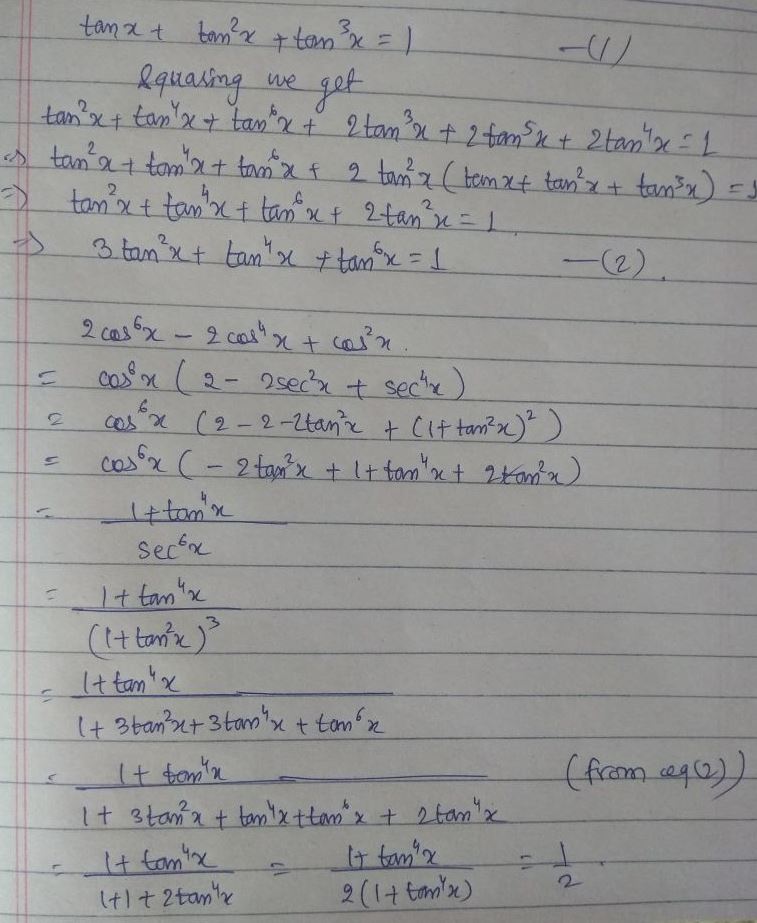 tanx + tan²x + tan³x = 1 —(1)
Squaring we get
tan²x + tan⁴x + tan⁶x + 2tan³x + 2tan⁵x + 2tan⁴x = 1
⇒ tan²x + tan⁴x + tan⁶x + 2 tan²x (tanx + tan²x + tan³x) = 1
⇒ tan²x + tan⁴x + tan⁶x + 2tan²x = 1
⇒ 3tan²x + tan⁴x + tan⁶x = 1 —(2).
2cos⁶x - 2cos⁴x + cos²x.
= cos⁶x (2 - 2sec²x + sec⁴x)
= cos⁶x (2 - 2 - 2tan²x + (1+tan²x)²)
= cos⁶x (- 2tan²x + 1 + tan⁴x + 2tan²x)
= 1+tan⁴x
sec⁶x
= 1+ tan⁴x
(1+tan²x)³
= 1+tan⁴x
1+ 3tan²x + 3tan⁴x + tan⁶x
= 1+ tan⁴x (from eq(2))
1+ 3tan²x + tan⁴x + tan⁶x + 2tan⁴x
= 1+ tan⁴x = 1+ tan⁴x = 1
1+1+2tan⁴x 2(1+tan⁴x) 2.